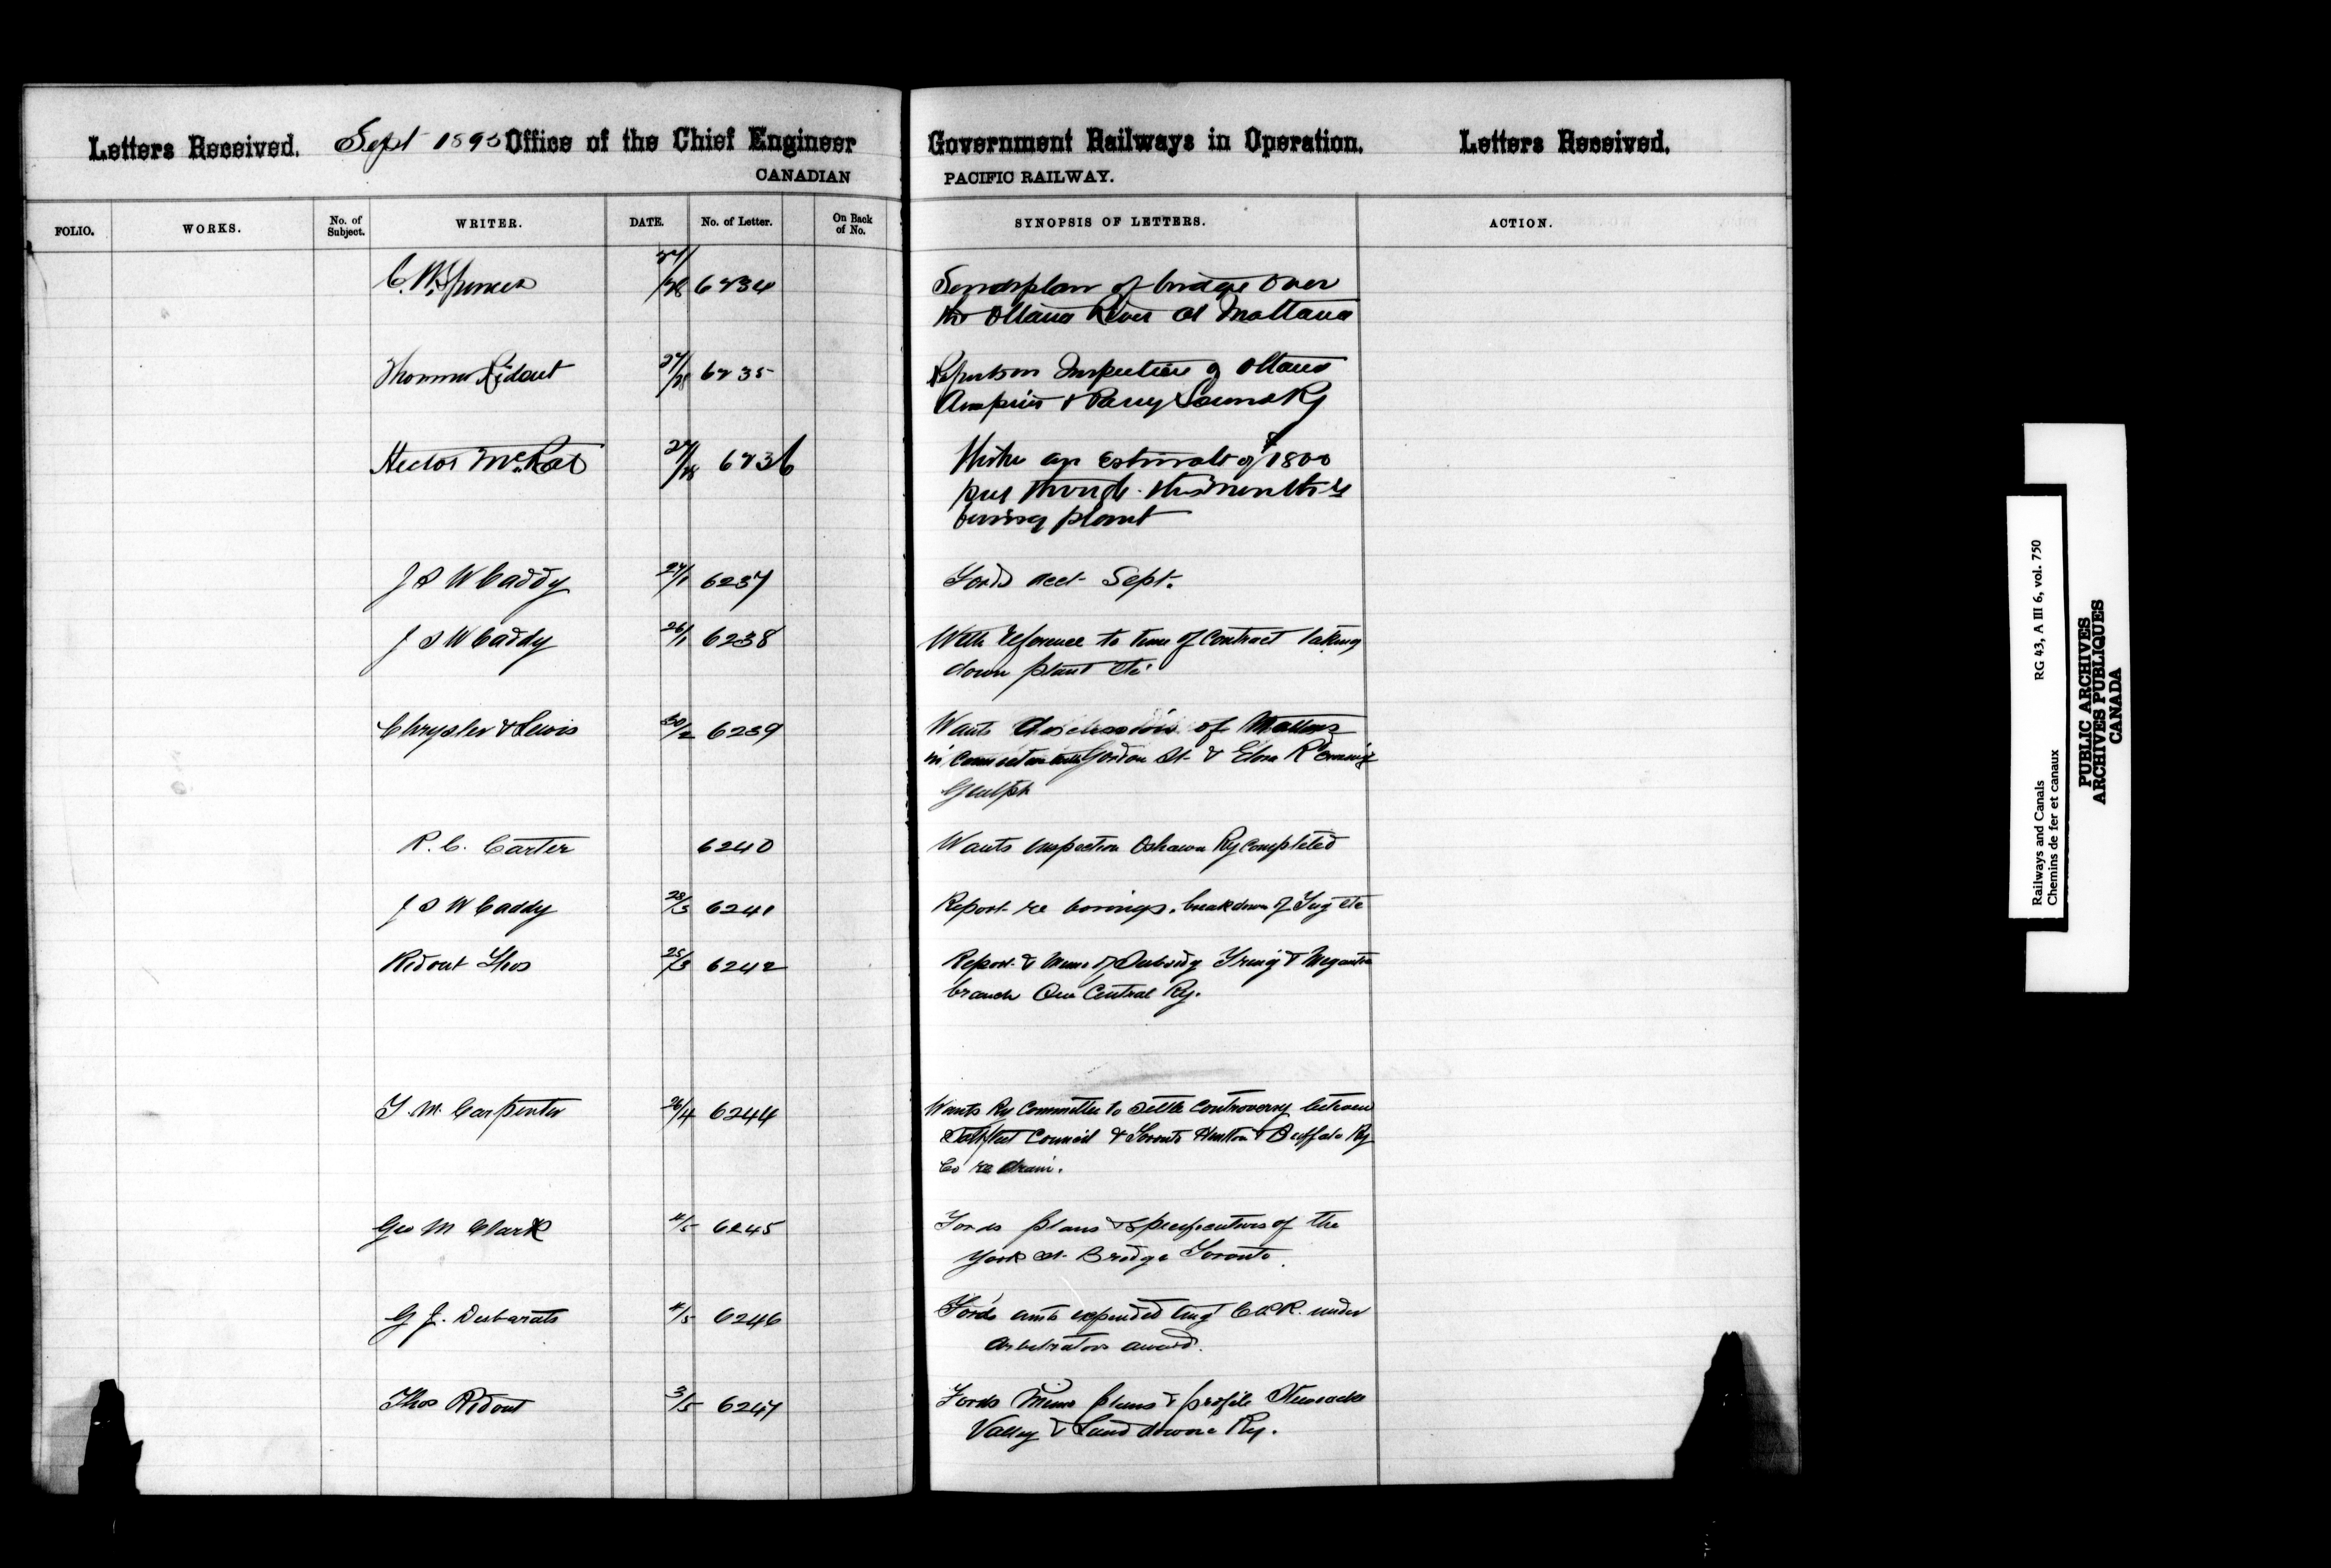 Letters Received. Sept 1893 Office of the Chief Engineer Government Railways in Operation. Letters Received.
CANADIAN PACIFIC RAILWAY.
FOLIO. WORKS. No. of Subject. WRITER. DATE. No. of Letter. On Back of No. SYNOPSIS OF LETTERS. ACTION.
C. W. Spencer 27/28 6234 Sends plan of bridge over
the Ottawa River at Mattawa
Thomas Ridout 27/28 6235 Reports on Inspection of Ottawa
Arnprior & Parry Sound Ry
Hector McRae 27/28 6236 Wishes an estimate of $1800
put through this month re
boring plant
J S W Caddy 27/1 6237 Fords acct Sept.
J S W Caddy 26/1 6238 With reference to time of contract taking
down plant etc
Chrysler & Lewis 30/2 6239 Wants of Matters
in connection with Gordon St. & Elora Rd crossing
Guelph
R. C. Carter 6240 Wants inspection Oshawa Ry completed
J S W Caddy 28/3 6241 Report re borings, breakdown of Tug etc
Ridout Thos 25/3 6242 Report & Memo of Subsidy & Megantic
branch Que Central Ry.
J. M. Carpenter 26/4 6244 Wants Ry Committee to settle controversy between
Saltfleet Council & Toronto Hamilton & Buffalo Ry
Co re drain.
Geo M Clark 4/5 6245 Fords plans & specifications of the
York St. Bridge Toronto.
G J. Desbarats 4/5 6246 Fords amts expended Aug C.P.R. under
Arbitrators award.
Thos Ridout 3/5 6247 Fords Memo plans & profile Tobique
Valley & Ry.
Railways and Canals RG 43, A III 6, vol. 750
Chemins de fer et canaux
PUBLIC ARCHIVES
ARCHIVES PUBLIQUES
CANADA